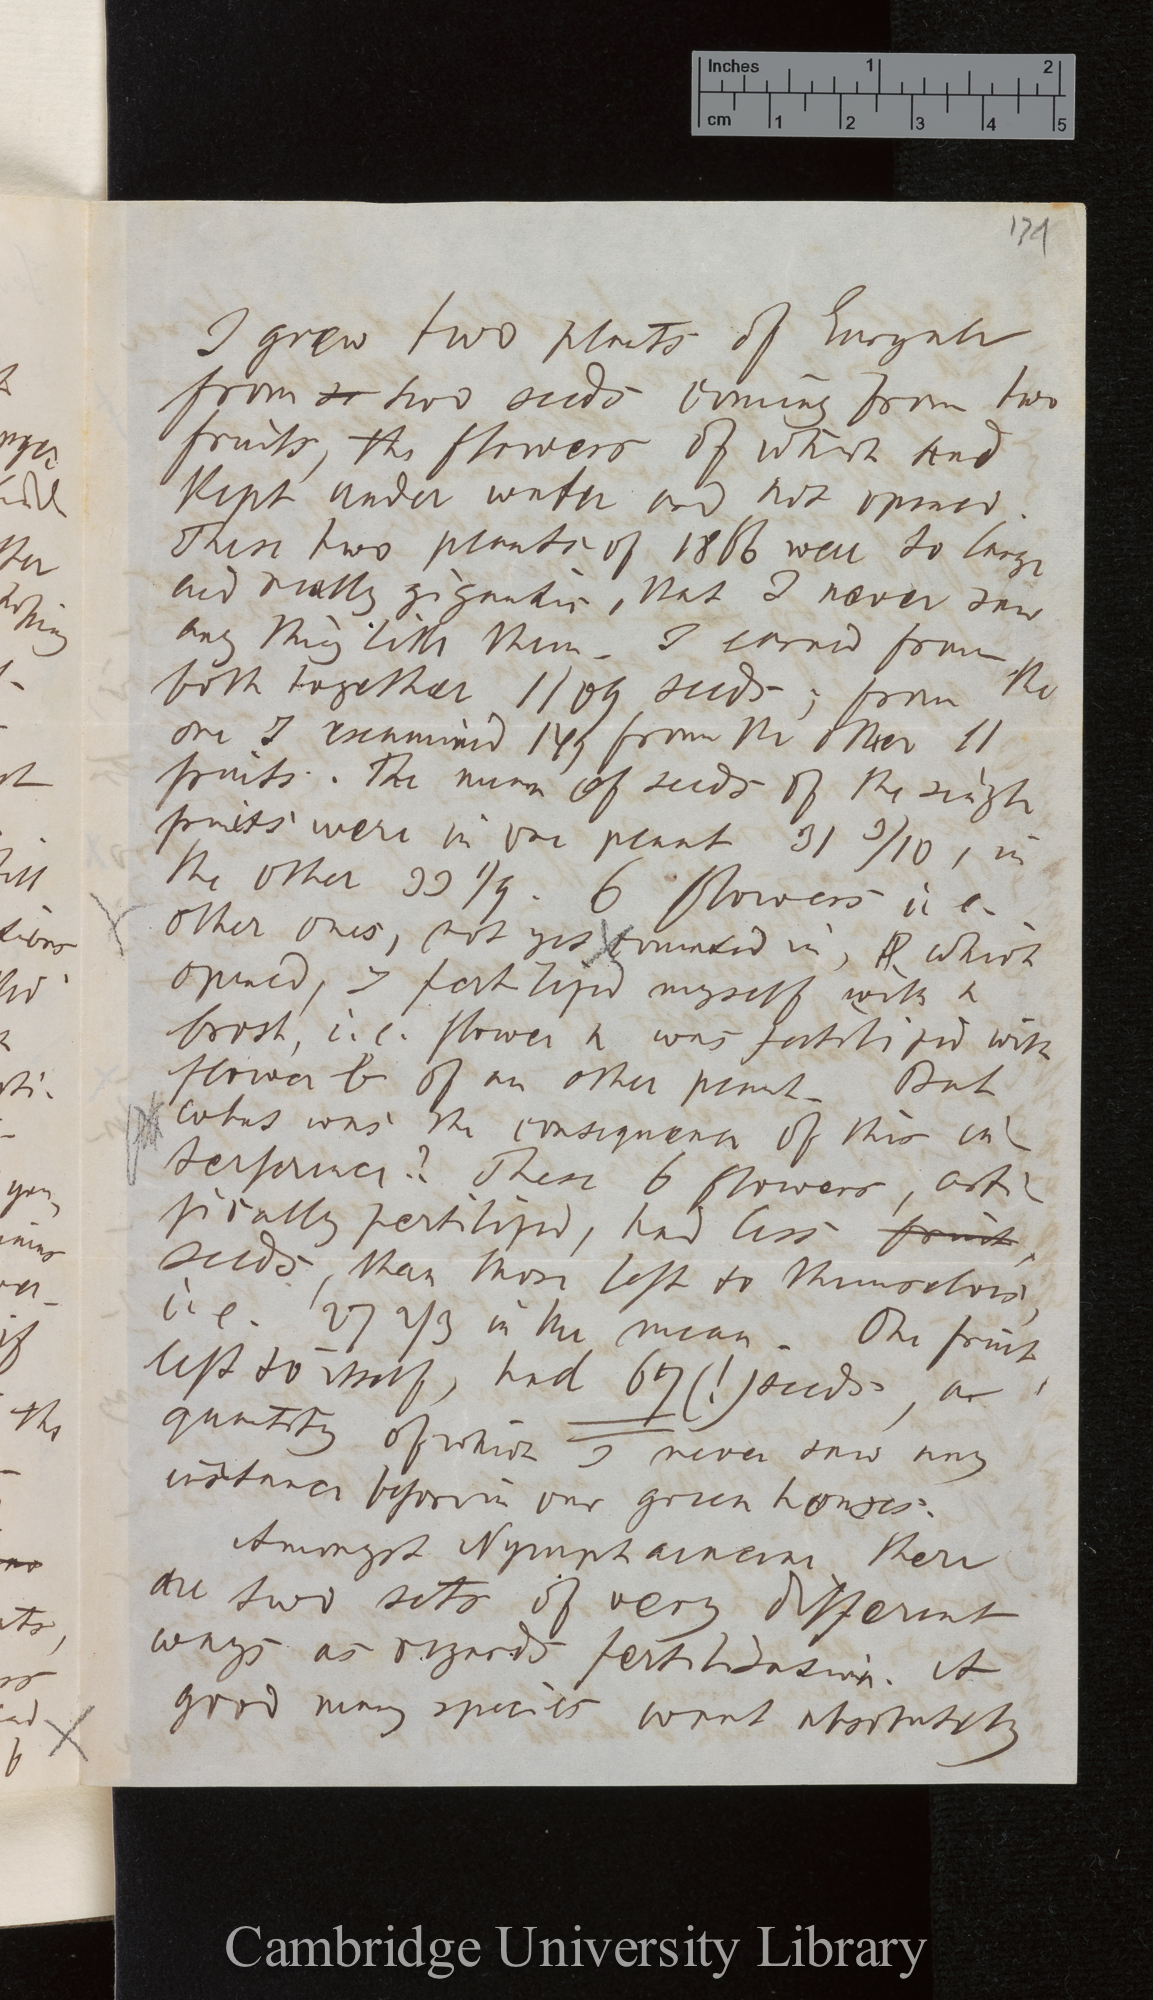 Inches 1 2
cm 1 2 3 4 5
I grew two plants of Euryale
from two seeds coming from two
fruits, the flowers of which had
Kept under water and not opened.
These two plants of 1866 were so large
and really gigantic, that I never saw
any thing like them. I earned from
both together 1109 seeds; from the
one I examined 14, from the other 11
fruits. The mean of seeds of the single
fruits were in one plant 31 3/10, in
the other 33 1/9. 6 flowers i. e.
other ones, not yet counted in, which
opened, I fertilized myself with a
brosh, i.e. flower a was fertilized with
flower b of an other plant. But
what was the consequence of this in-
terference? These 6 flowers, arti-
ficially fertilized, had less fruit,
seeds, than those left to themselves,
i. e. 27 2/3 in the mean. One fruit
left to itself, had 67(!) seeds, a
quantity of which I never saw any
instance before in our green houses.
Amongst Nymphaeaceae there
are two sets of very different
ways as regards fertilization. A
good many species want absolutely
Cambridge University Library